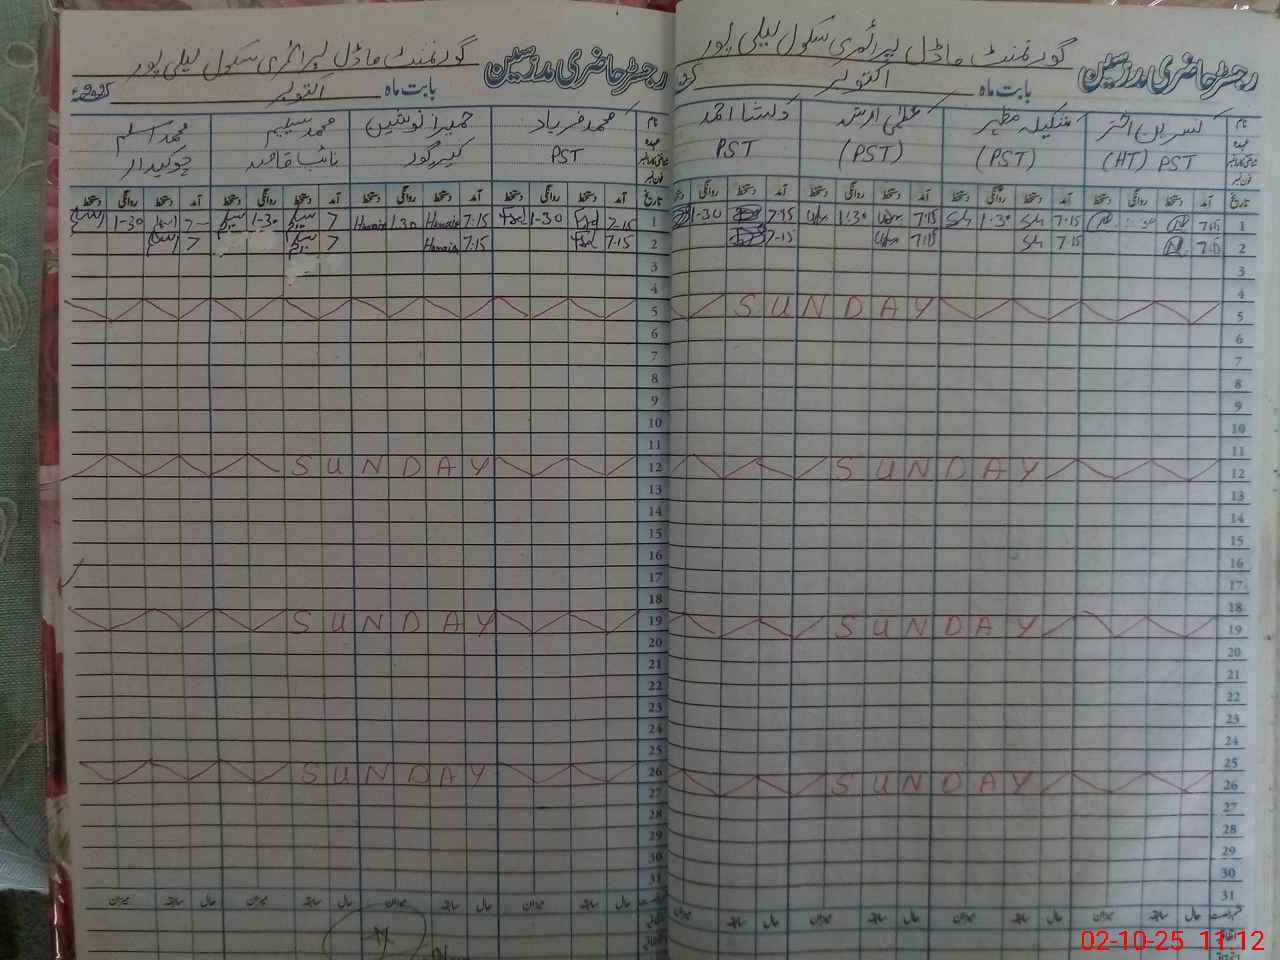 رجسٹر حاضری مدرسین گورنمنٹ ماڈل پرائمری سکول لیلی پور
بابت ماہ اکتوبر
نام نسرین اختر شکیلہ مظہر عظمی ارشد دلشا احمد
(HT) PST (PST) (PST) PST
تاریخ آمد دستخط روانگی دستخط آمد دستخط روانگی دستخط آمد دستخط روانگی دستخط آمد دستخط روانگی
1 7:15 7:15 1:30 7:15 1:30 7:15 1-30
2 7:15 7:15 7:15 7-15
3
4
5 SUNDAY
6
7
8
9
10
11
12 SUNDAY
13
14
15
16
17
18
19 SUNDAY
20
21
22
23
24
25
26 SUNDAY
27
28
29
30
31
حال سابقہ میزان حال سابقہ میزان حال سابقہ میزان حال سابقہ میزان
رجسٹر حاضری مدرسین گورنمنٹ ماڈل پرائمری سکول لیلی پور
بابت ماہ اکتوبر 2025ء
نام محمد فریاد حمیرا نوشین محمد سلیم محمد اسلم
PST کیئر گور نائب قاصد چوکیدار
تاریخ آمد دستخط روانگی دستخط آمد دستخط روانگی دستخط آمد دستخط روانگی دستخط آمد دستخط روانگی دستخط
1 7-15 1-30 7:15 Humaira 1:30 Humaira 7 سلیم 1-30 سلیم 7 اسلم 1-30 اسلم
2 7-15 7:15 Humaira 7 سلیم 7 اسلم
3
4
5
6
7
8
9
10
11
12 SUNDAY
13
14
15
16
17
18
19 SUNDAY
20
21
22
23
24
25
26 SUNDAY
27
28
29
30
31
حال سابقہ میزان حال سابقہ میزان حال سابقہ میزان حال سابقہ میزان
02-10-25 11:12